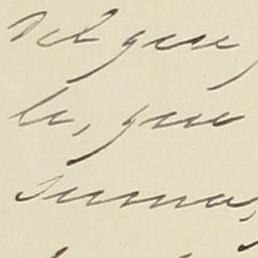 del que
le, que
suma,